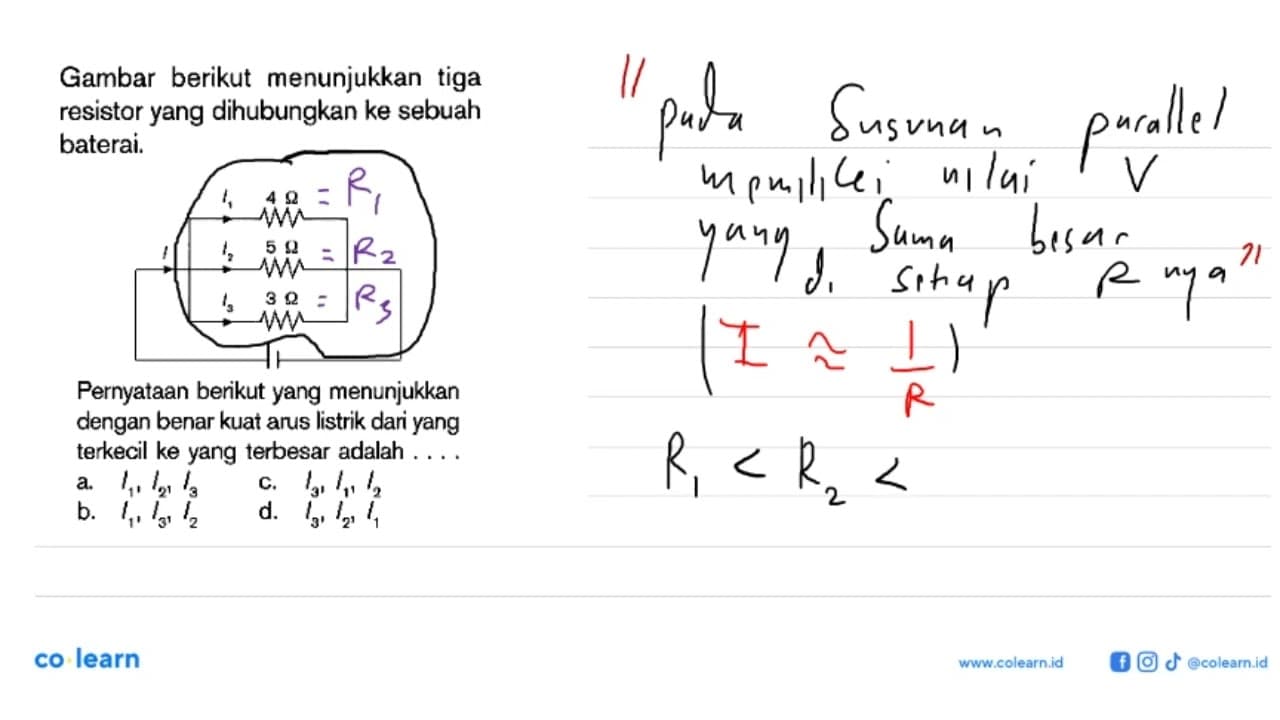 Gambar berikut menunjukkan tiga
resistor yang dihubungkan ke sebuah
baterai.
I₁ 4 Ω = R₁
I I₂ 5 Ω = R₂
I₃ 3 Ω = R₃
Pernyataan berikut yang menunjukkan
dengan benar kuat arus listrik dari yang
terkecil ke yang terbesar adalah . . . .
a. I₁, I₂, I₃ c. I₃, I₁, I₂
b. I₁, I₃, I₂ d. I₃, I₂, I₁
" pada Susunan parallel
memiliki nilai V
yang Sama besar
di setiap R nya "
( I ≈ 1/R )
R₁ < R₂ <
co learn
www.colearn.id @colearn.id